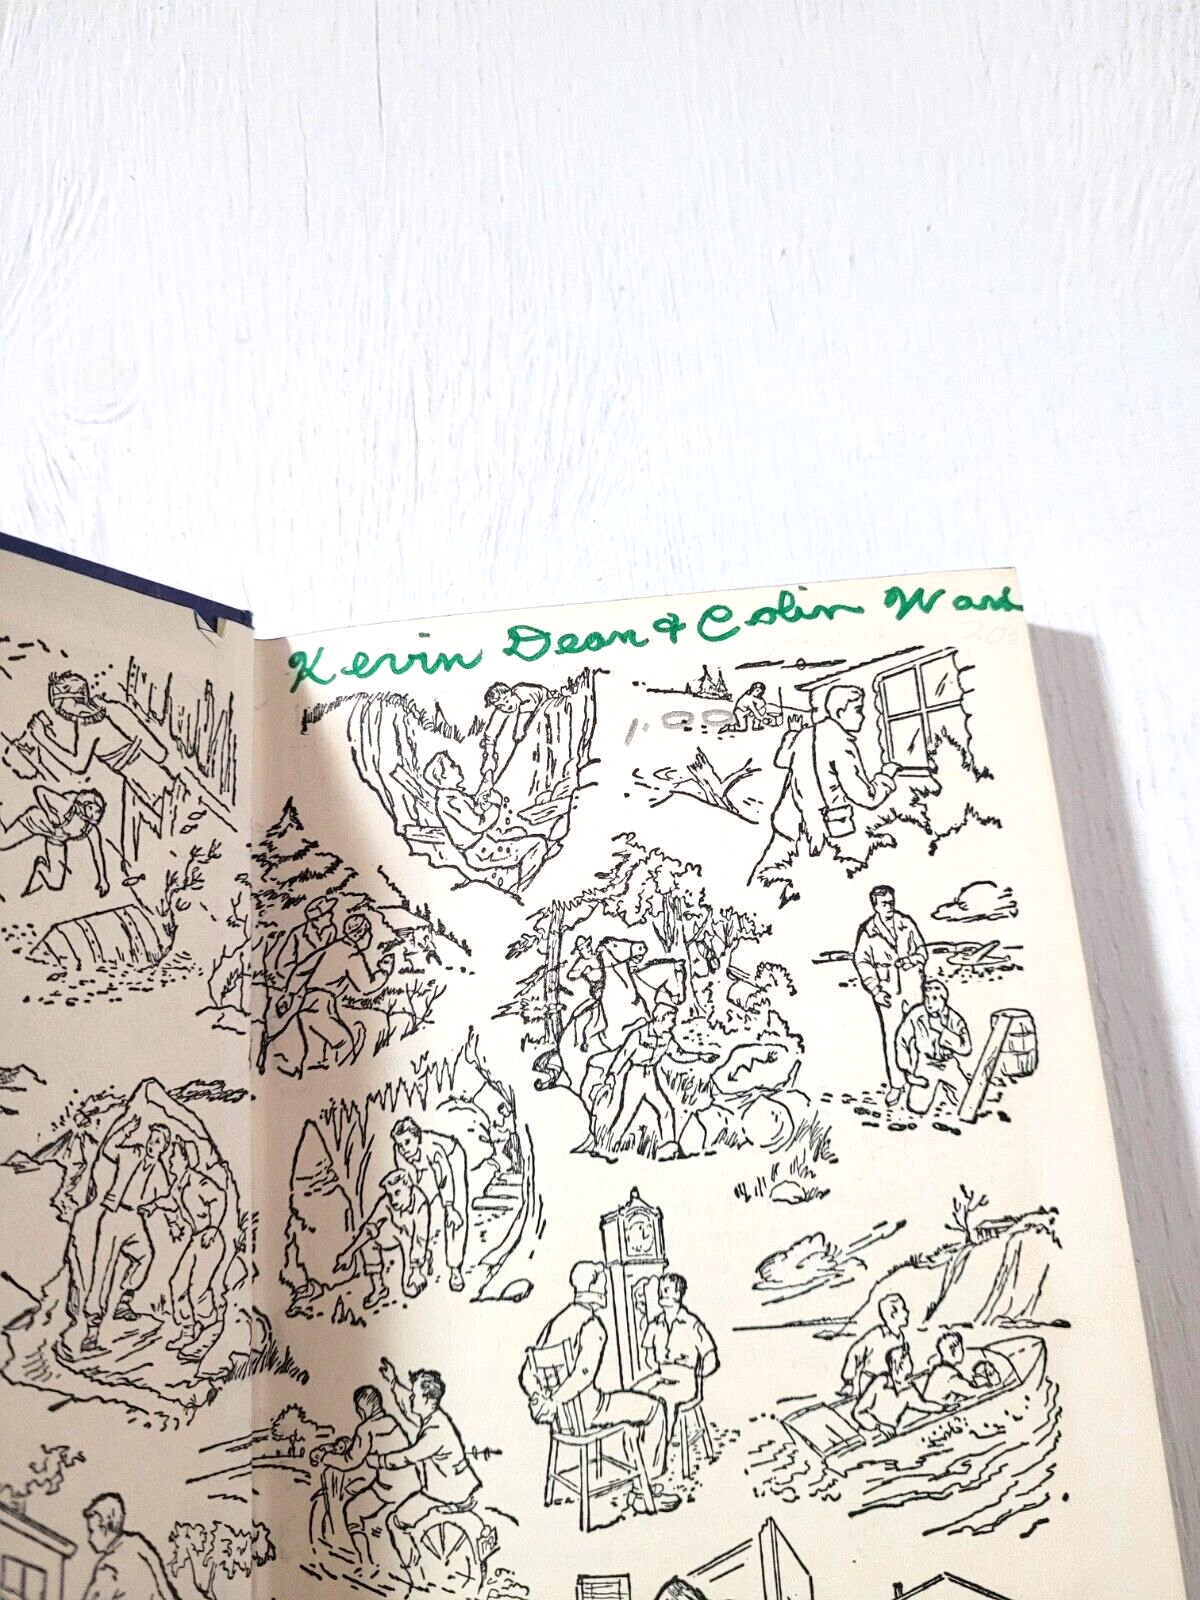 Kevin Dean & Colin Ward
1.00